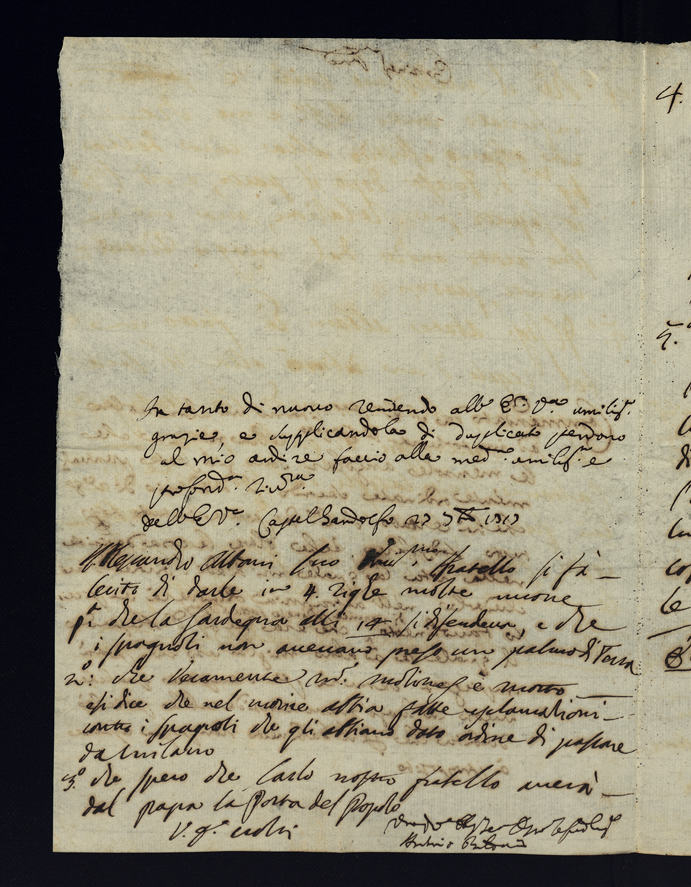 In tanto di nuovo rendendo all' E.ª V.ª umiliss.e
grazie, e supplicandola di duplicato perdono
al mio ardire faccio alla med.ª umiliss.ª e
profond.ª
dell' E. V.ª Castel Gandolfo 27 1717
Alessandro Albani suo fratello si fà
lecito di darle in 4. righe molte nuove
p.ª che la Sardegna alli 14 si difendeva, e che
i spagnoli non avevano preso un palmo di Terra
2.º che veramente m.r molines è morto
e si dice che nel morire abbia fatte esclamationi
contro i spagnoli che gli abbiano dato ordine di passare
da milano
3.º che spero che Carlo nostro fratello averà
dal papa la Porta del Popolo
4.
5.